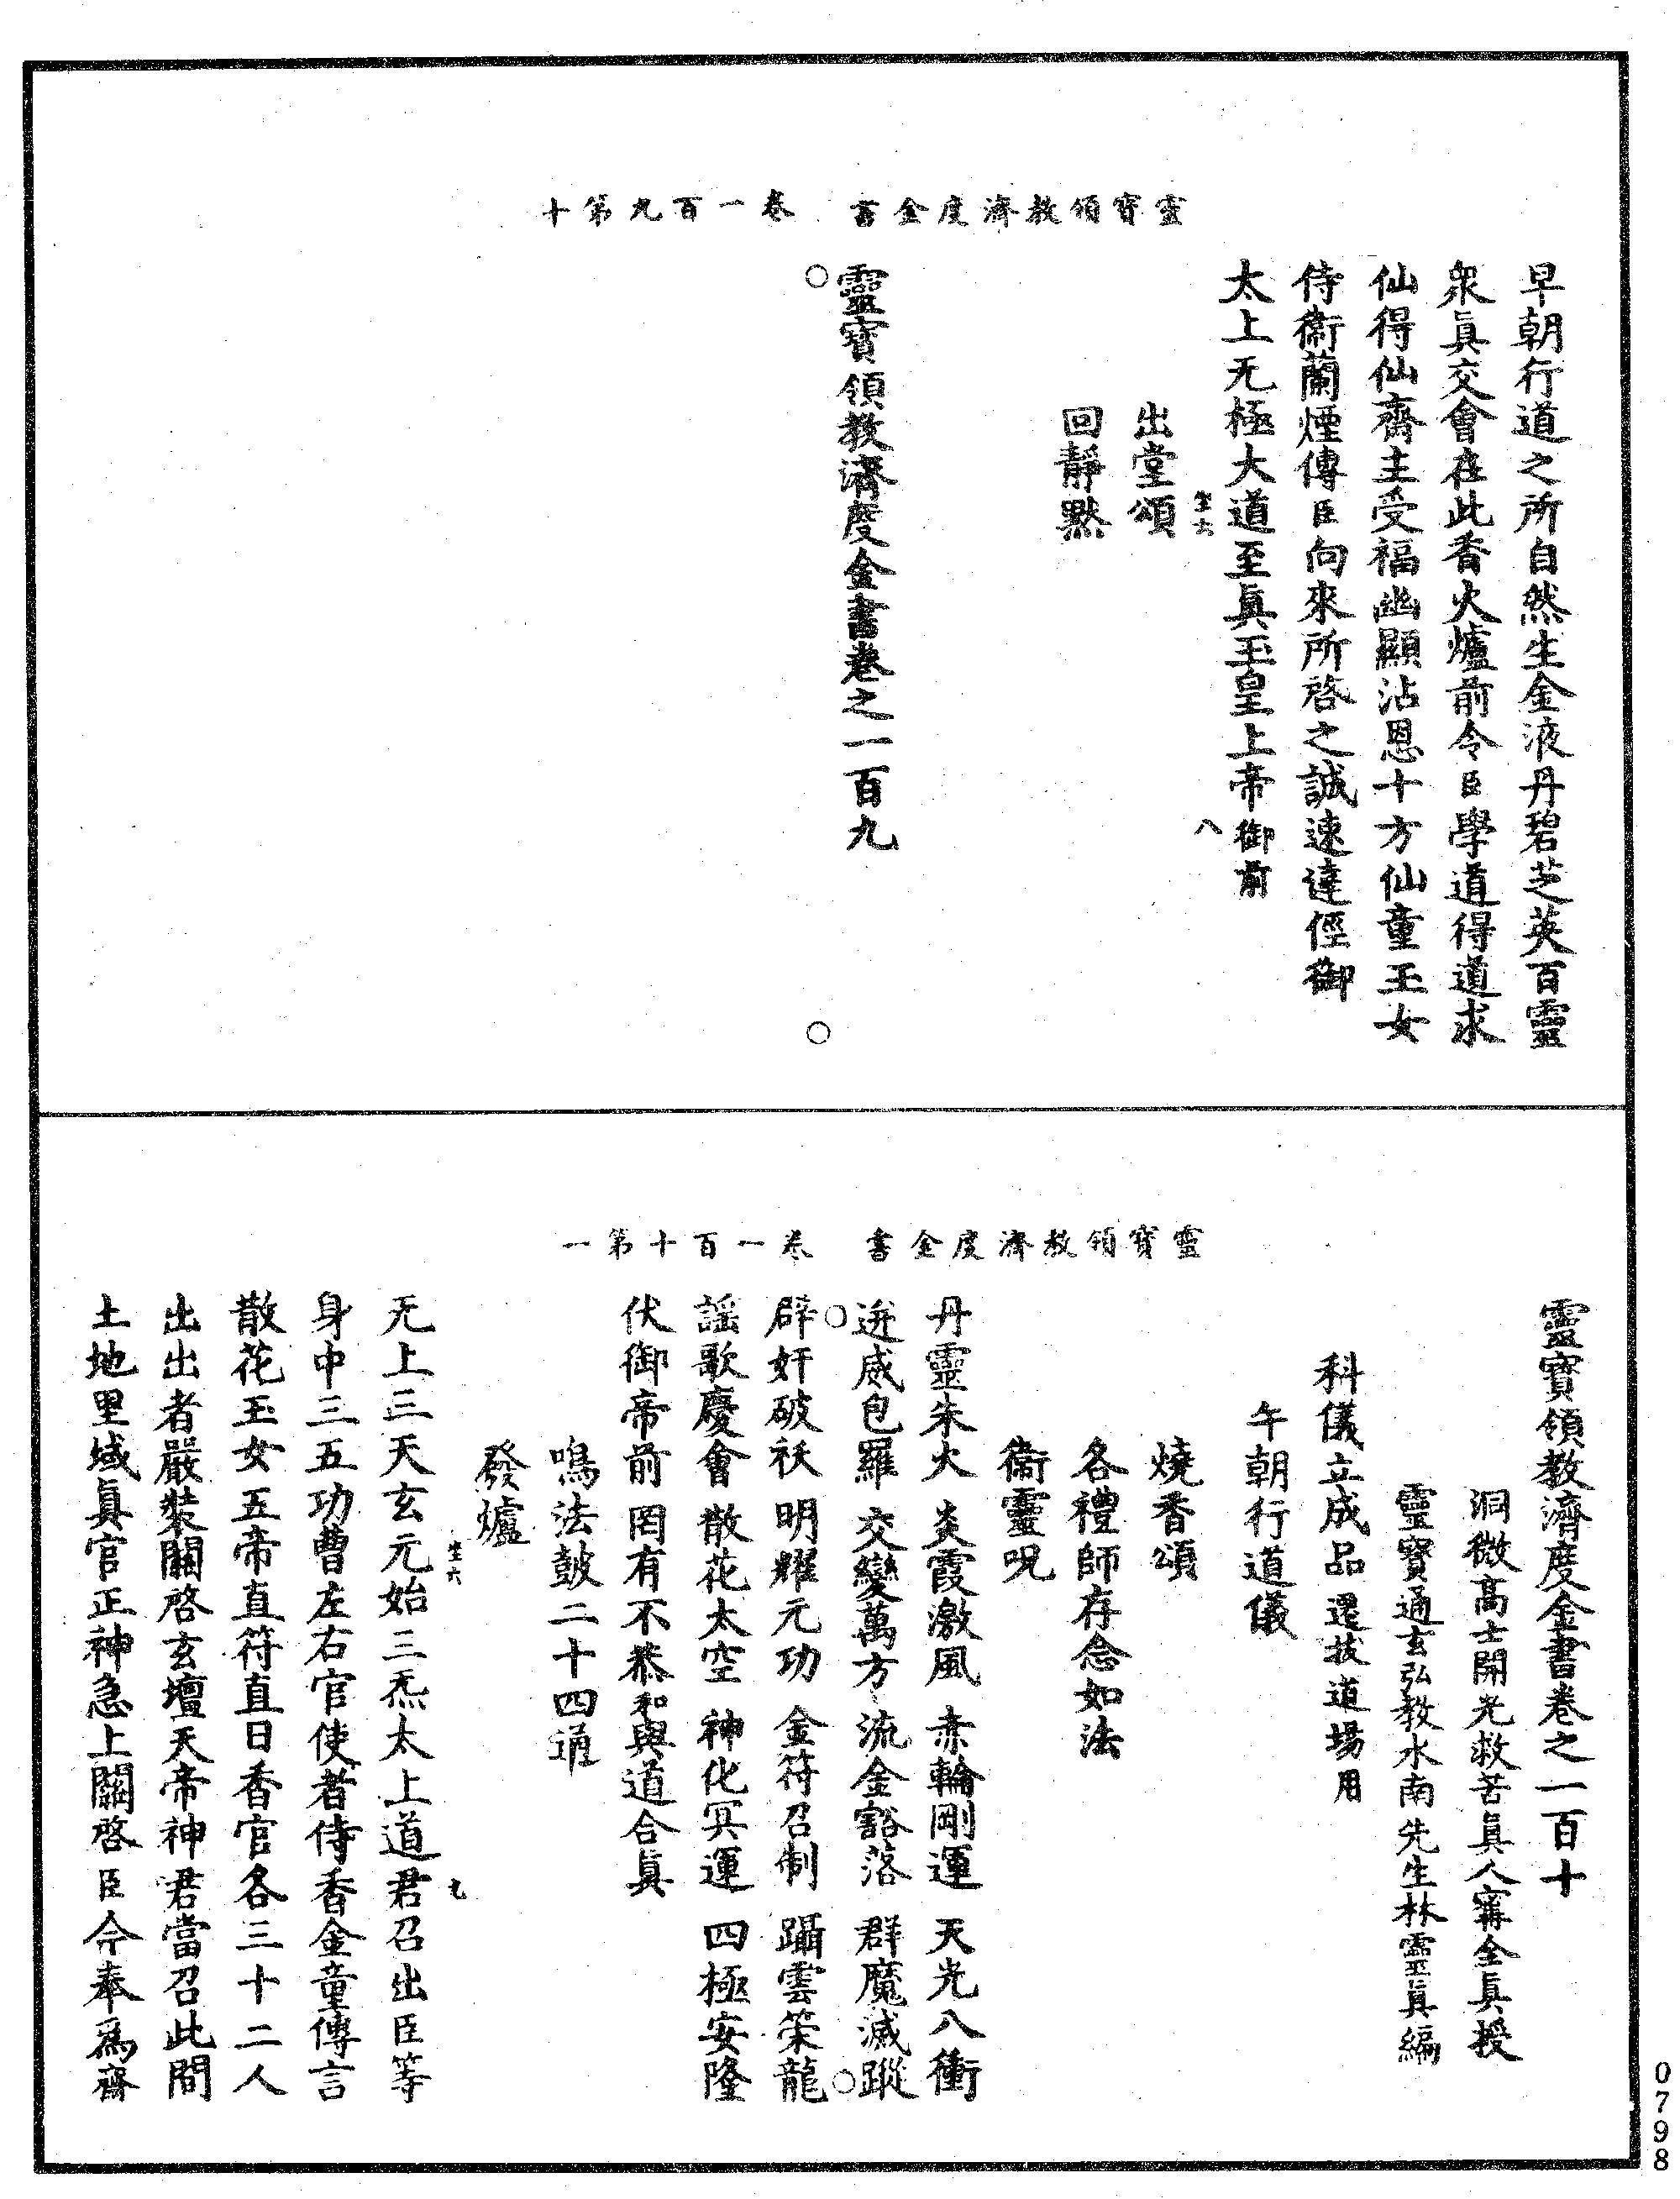 靈寶領教濟度金書　卷一百九第十
早朝行道之所自然生金液丹碧芝英百靈
衆眞交會在此香火爐前令臣學道得道求
仙得仙齋主受福幽顯沾恩十方仙童玉女
侍衞蘭煙傳臣向來所啓之誠速達俓御
太上无極大道至眞玉皇上帝御前
坐六　八
出堂頌
回靜黙
靈寶領教濟度金書卷之一百九
靈寶領教濟度金書　卷一百十第一
靈寶領教濟度金書卷之一百十
洞微高士開光救苦眞人寗全眞授
靈寶通玄弘教水南先生林靈眞編
科儀立成品遷拔道場用
午朝行道儀
燒香頌
各禮師存念如法
衞靈呪
丹靈朱火　炎霞激風　赤輪剛運　天光八衝
迸威包羅　交變萬方　流金豁落　群魔滅蹤
辟奸破袄　明耀元功　金符召制　躡雲策龍
謡歌慶會　散花太空　神化冥運　四極安隆
伏御帝前　罔有不恭和與道合眞
鳴法鼓二十四通
發爐
坐六　九
无上三天玄元始三炁太上道君召出臣等
身中三五功曹左右官使者侍香金童傳言
散花玉女五帝直符直日香官各三十二人
出出者嚴裝關啓玄壇天帝神君當召此間
土地里域眞官正神急上關啓臣今奉爲齋
0798